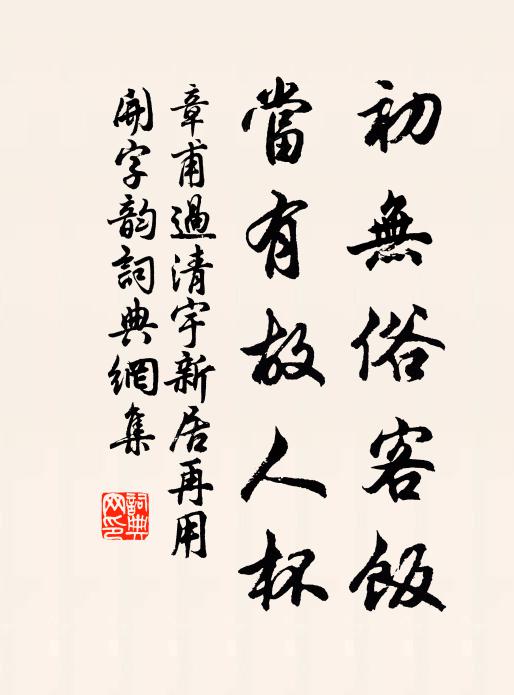 初無俗客飯
當有故人杯
章甫過清宇新居再用
開字韵詞典網集
詞典
网印